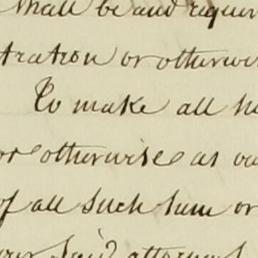 shall be and requir
tration or otherwi
To make all ne
or otherwise as
of all such sum or
said attorney